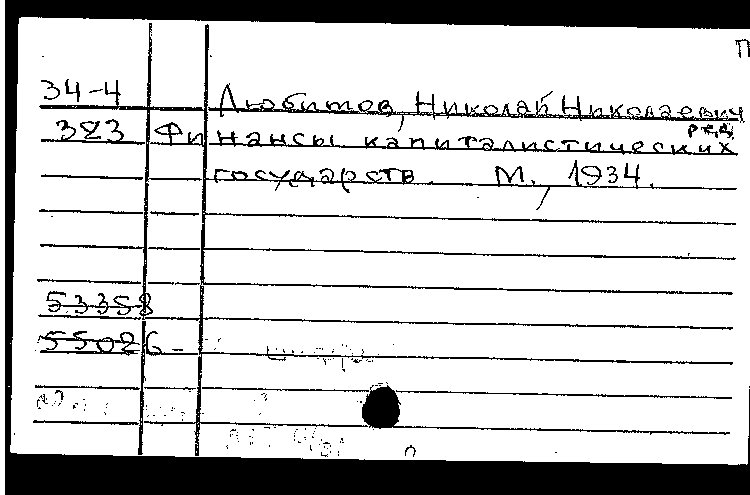 П
34-4 Любимов, Николай Николаевич
ред.
323 Финансы капиталистических
государств. М., 1934.
53358
55026-